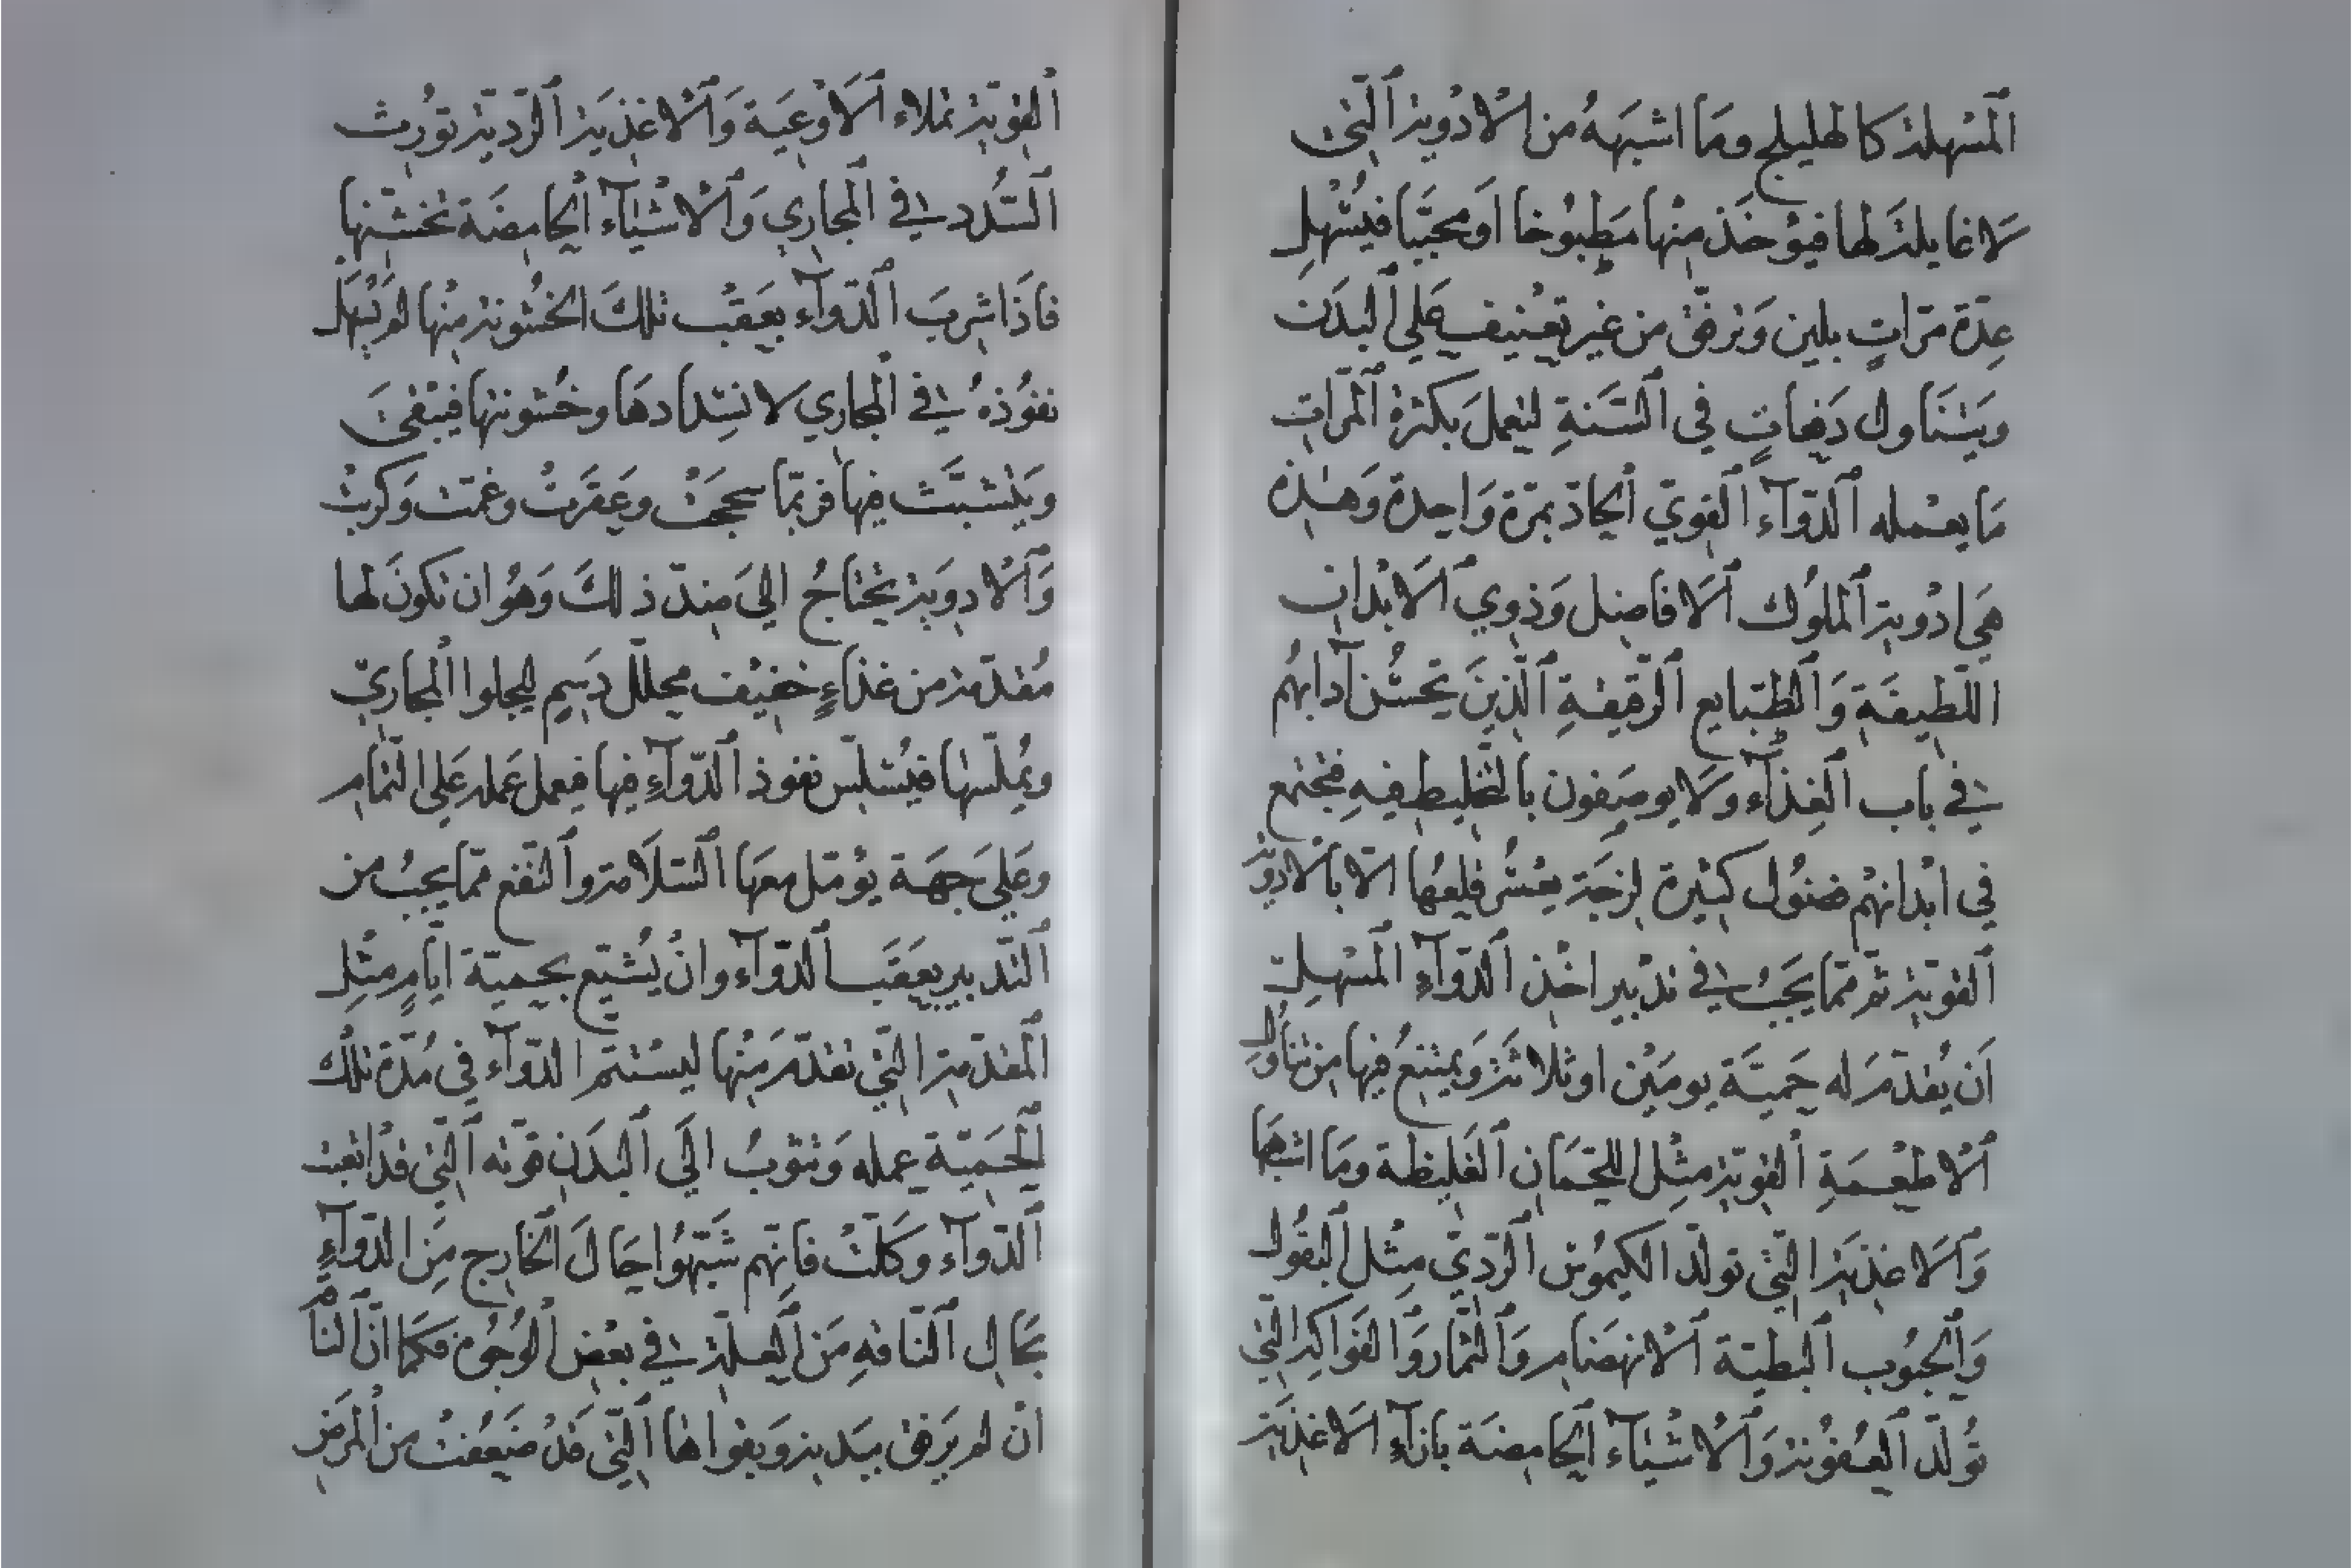 المسهلة كالهليلج وما اشبهه من الادوية التي
لا غايلة لها فيؤخذ منها مطبوخا او محببا فيسهل
عدة مرات بلين وترفق من غير تعنيف على البدن
ويتناول دفعات في السنة ليعمل بكثرة المرات
ما يعمله الدواء القوي الحاد بمرة واحدة وهذه
هي ادوية الملوك الافاضل وذوي الابدان
اللطيفة والطبايع الرقيقة الذين تحسن آدابهم
في باب الغذاء ولا يوصفون بالتخليط فيه فتجتمع
في ابدانهم فضول كثيرة لزجة يعسر قلعها الا بالادوية
القوية ثم مما يجب في تدبير اخذ الدواء المسهل
ان يقدم له حمية يومين او ثلاثة ويمتنع فيها من تناول
الاطعمة القوية مثل اللحمان الغليظة وما اشبهها
والاغذية التي تولد الكيموس الردي مثل البقول
والحبوب البطية الانهضام والثمار والفواكه التي
تولد العفونة والاشياء الحامضة بازاء الاغذية
القوية تملاء الاوعية والاغذية الردية تورث
السدد في المجاري والاشياء الحامضة تخشنها
فاذا شرب الدواء بعقب تلك الخشونة منها لم يسهل
نفوذه في المجاري لانسدادها وخشونتها فيبقى
ويتشبث فيها فربما سحجت وعقرت وغمت وكربت
والادوية تحتاج الى ضد ذلك وهو ان تكون لها
مقدمة من غذاء خفيف محلل دسم ليجلوا المجاري
ويملسها فيسلس نفوذ الدواء فيها فيعمل عمله على التمام
وعلى جهة يؤمل معها السلامة والنفع مما يجب من
التدبير بعقب الدواء وان يشيع بحمية ايام مثل
المقدمة التي تقدم منها ليستتم الدواء في مدة تلك
الحمية عمله وتثوب الى البدن قوته التي قد اتعبت
الدواء وكلت فانهم شبهوا حال الخارج من الدواء
بحال الناقه من العلة في بعض الوجوه فكما ان الناقه
ان لم يرفق ببدنه وبقواها التي قد ضعفت من المرض